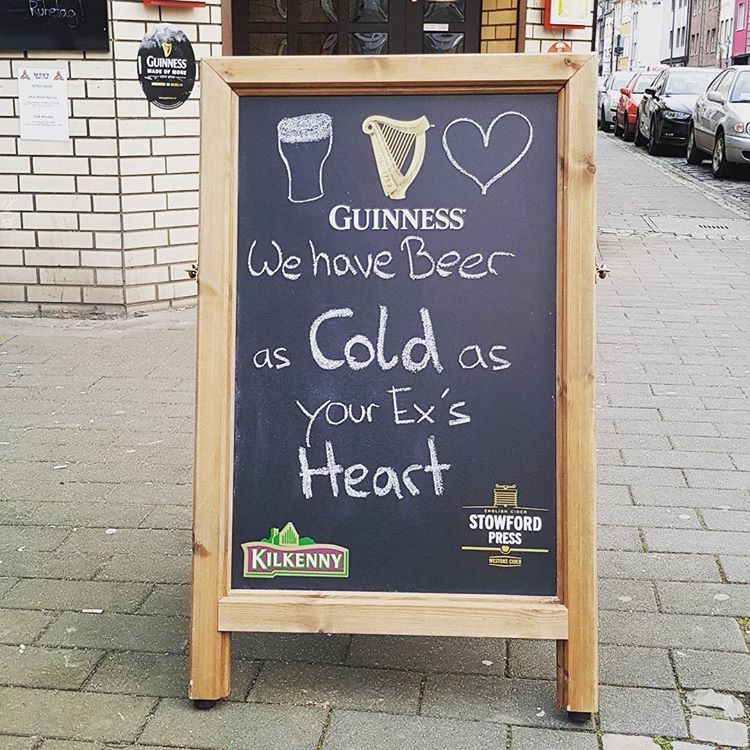 Ruhetag!
GUINNESS
MADE OF MORE
SPECIALS
GUINNESS
We have Beer
as Cold as
your Ex's
Heart
KILKENNY
ENGLISH CIDER
STOWFORD
PRESS
WESTONS CIDER